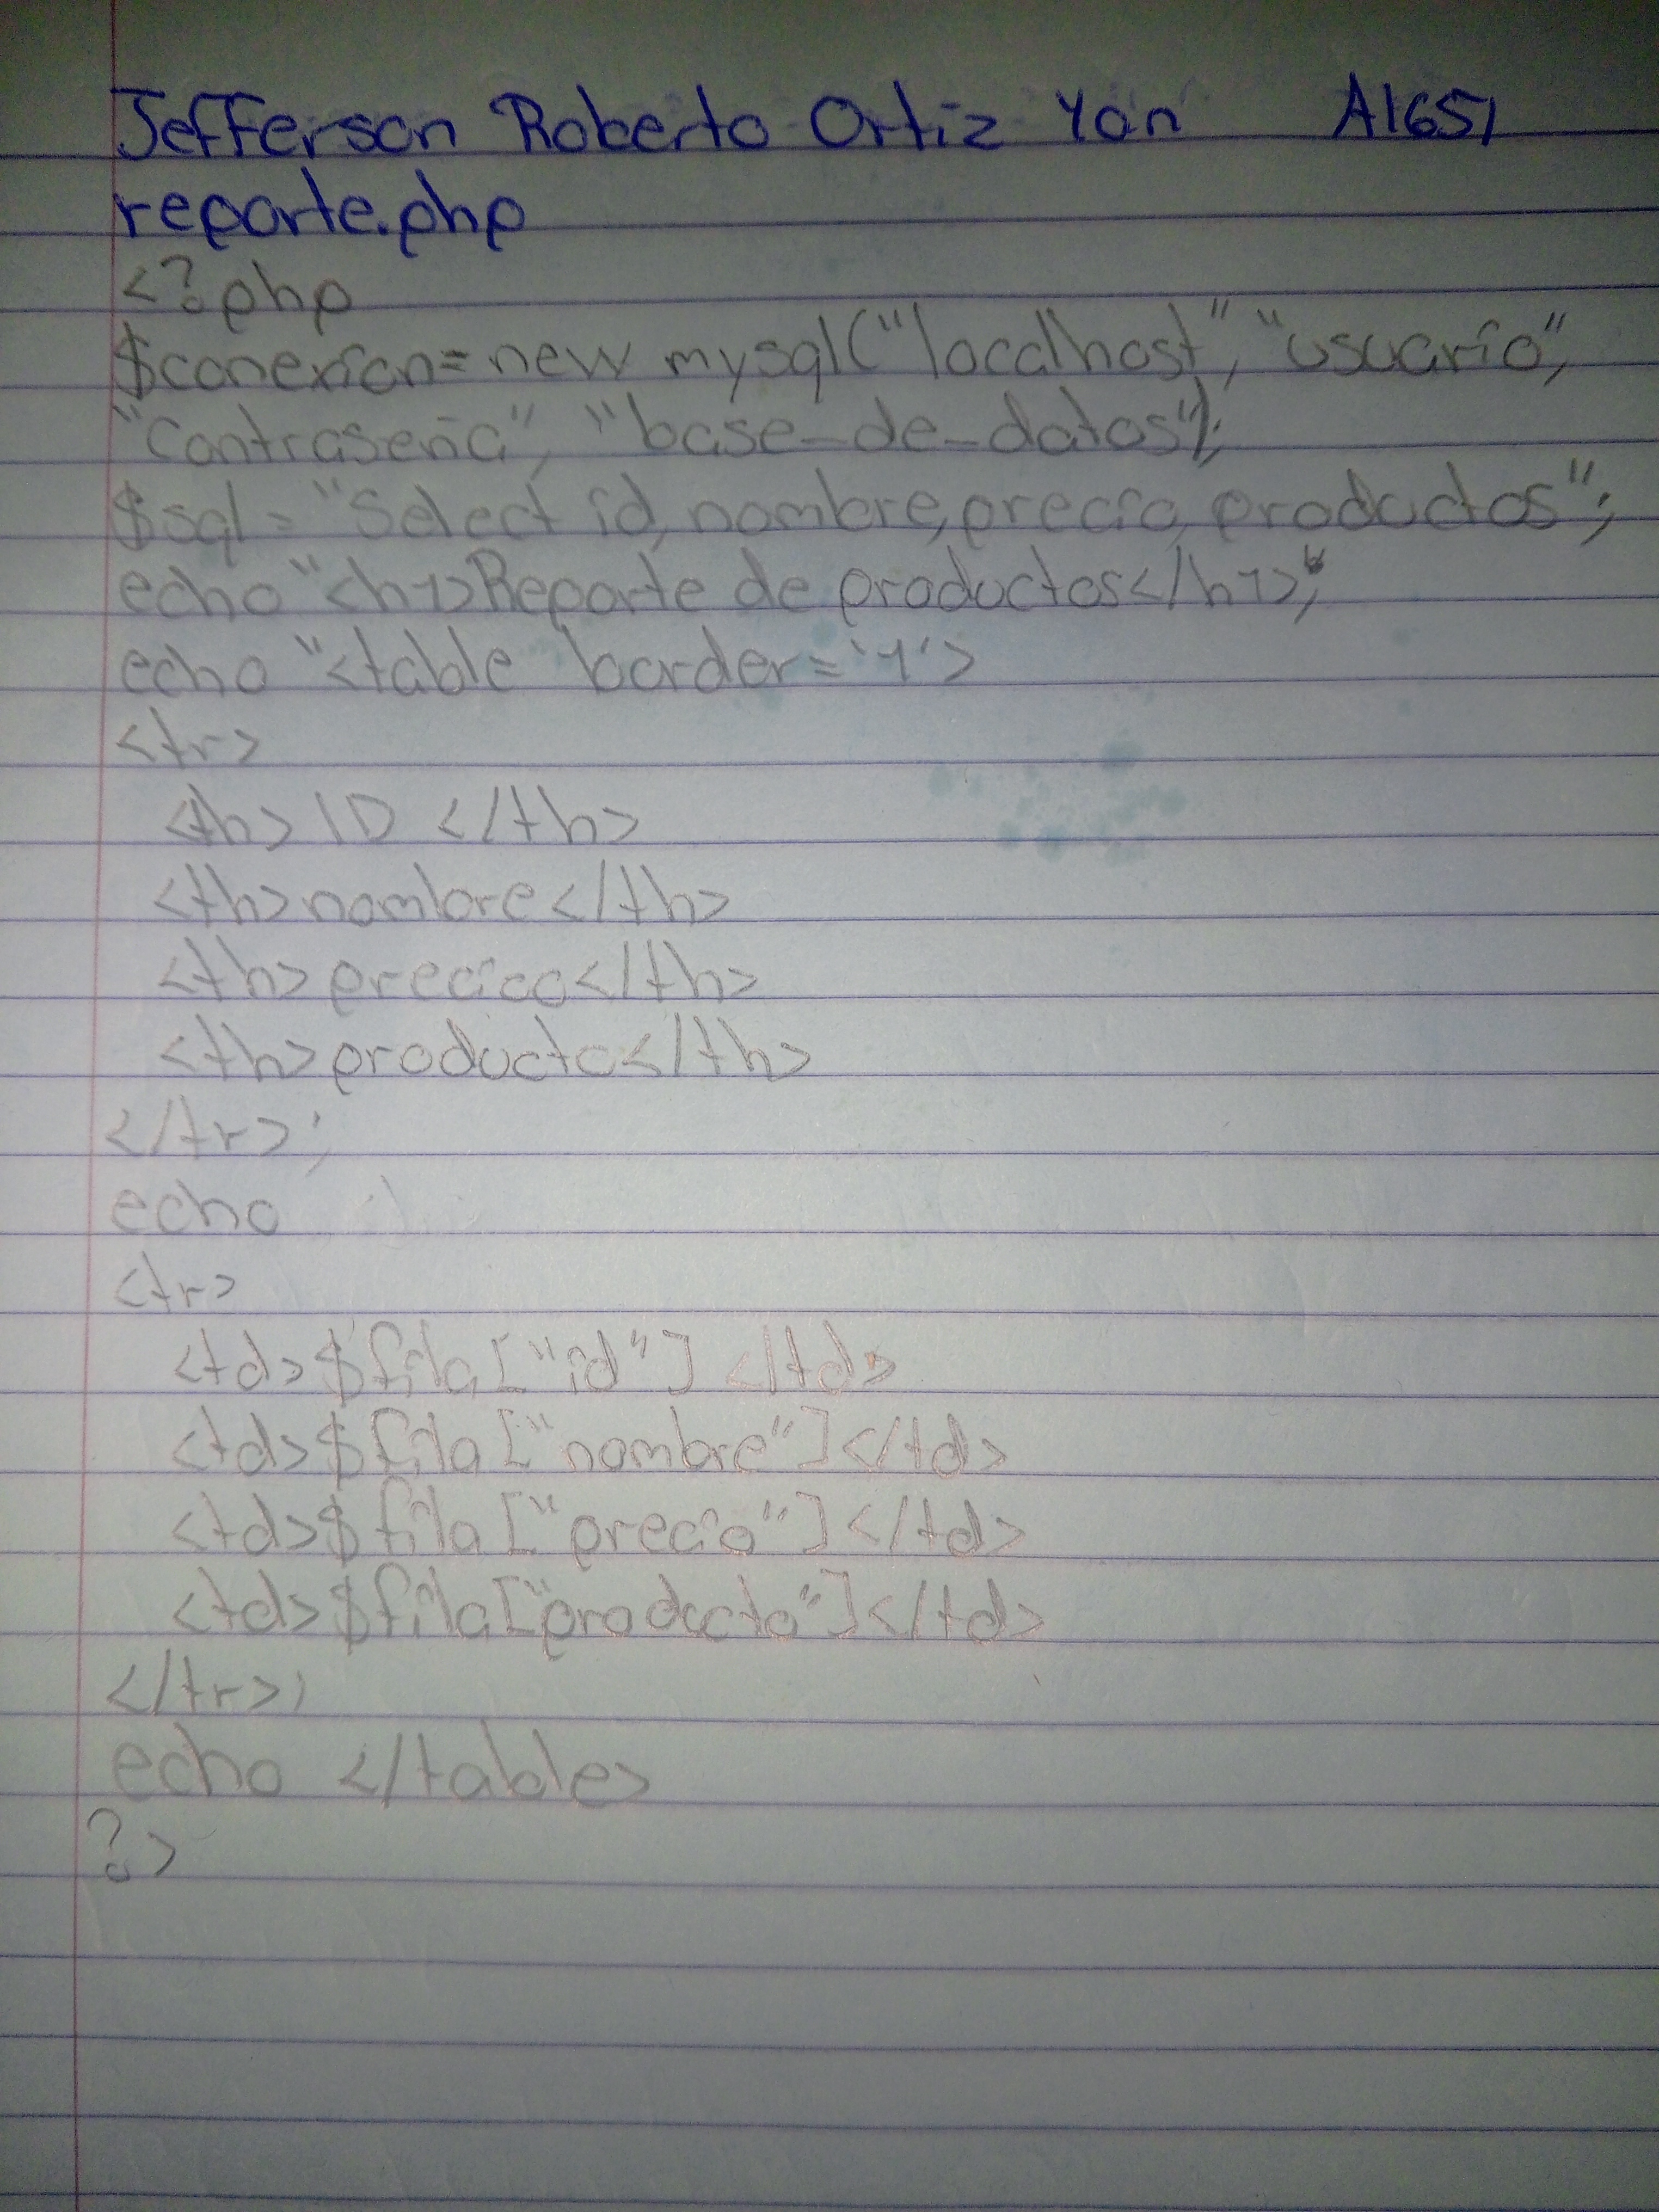 Jefferson Roberto Ortiz Yan A1651
reporte.php
<?php
$conexion=new mysql("localhost", "usuario",
"Contraseña", "base_de_datos");
$sql = "Select id, nombre, precio, productos";
echo "<h1>Reporte de productos</h1>";
echo "<table border='1'>
<tr>
<th> ID </th>
<th>nombre</th>
<th>precico</th>
<th>producto</th>
</tr>;
echo
<tr>
<td>$fila["id"] </td>
<td>$fila["nombre"]</td>
<td>$fila["precio"]</td>
<td>$fila["producto"]</td>
</tr>;
echo </table>
?>